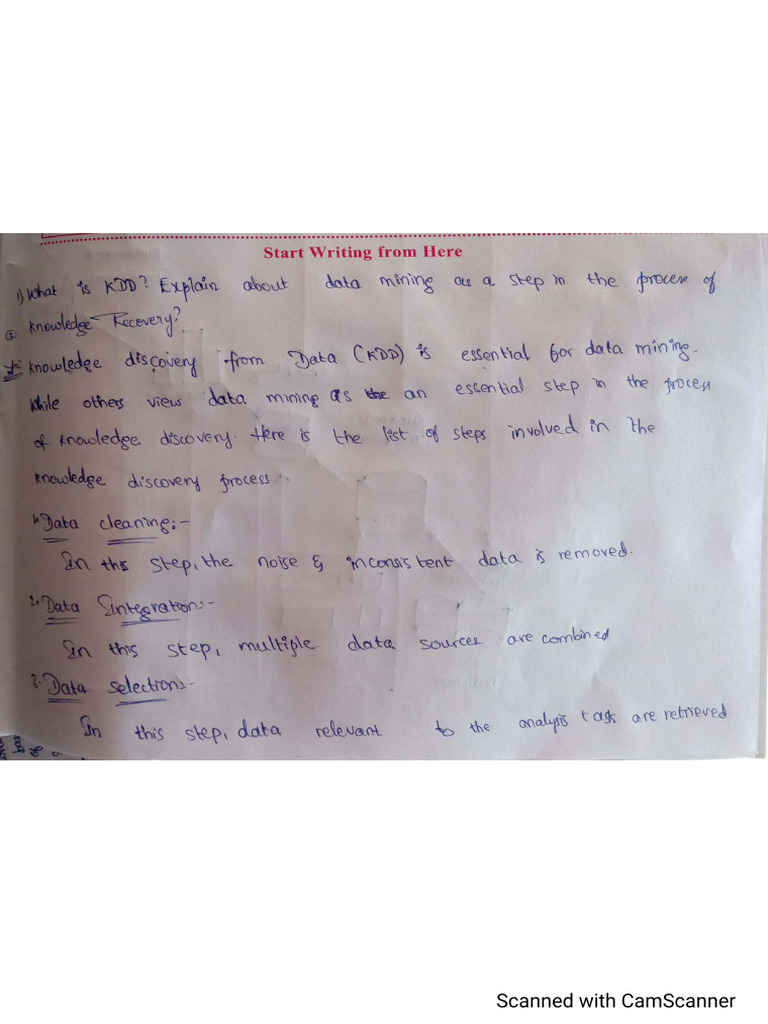 Start Writing from Here
1) What is KDD? Explain about data mining as a step in the process of
knowledge Recovery?
knowledge discovery from Data (KDD) is essential for data mining.
While others view data mining as the an essential step in the process
of knowledge discovery. Here is the list of steps involved in the
knowledge discovery process
1. Data cleaning:-
In this step, the noise & inconsistent data is removed.
2. Data Integration:-
In this step, multiple data sources are combined
3. Data selection:-
In this step, data relevant to the analysis task are retrieved
Scanned with CamScanner